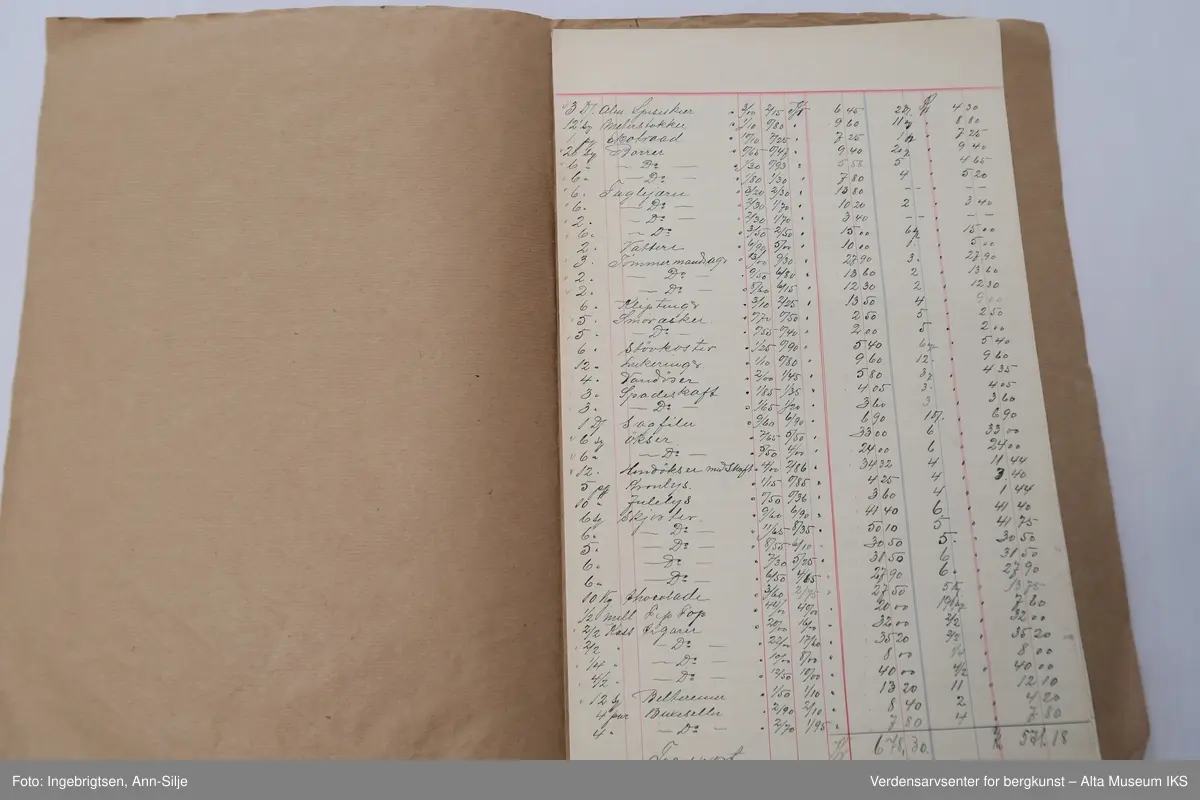 3 Dz. Alm Spiseskier 3/00 2/15 6 45 4 30
12 sty Meterstokker 1/10 0/80 9 60 11 8 80
1 7 25 7 25
20 sty Borrer 0/65 0/47 9 40 9 40
6 " — Do — 1/30 0/93 5 58 5 4 65
6 " — Do — 1/80 1/30 7 80 4 5 20
6 " 3/20 2/30 13 80 – –
6 " — Do — 2/30 1/70 10 20 2 3 40
2 " — Do — 2/30 1/70 3 40 – –
6 " — Do — 3/50 2/50 15 00 15 00
2 " Vatters 6/90 5/00 10 00 5 00
3 " Tømmermandsg. 13/00 9/30 27 90 3 27 90
2 " — Do — 9/50 6/80 13 60 2 13 60
2 " — Do — 8/60 6/15 12 30 2 12 30
6 " 3/10 2/25 13 50 4 9 00
5 " Smøræsker 0/70 0/50 2 50 5 2 50
5 " — Do — 0/55 0/40 2 00 5 2 00
6 " Støvkoster 1/25 0/90 5 40 5 40
12 " 1/10 0/80 9 60 12 9 60
4 " Vandøser 2/00 1/45 5 80 3 4 35
3 " Spadeskaft 1/85 1/35 4 05 3 4 05
3 " — Do — 1/65 1/20 3 60 3 3 60
1 Dz Saafile 9/60 6/90 6 90 6 90
6 sty Økser 7/65 5/50 33 00 6 33 00
6 " — Do — 5/50 4/00 24 00 6 24 00
12 " Haandøkser med Skaft 4/00 2/86 34 32 4 11 44
5 pg Kronlys 1/15 0/85 4 25 4 3 40
10 " Julelys 0/50 0/36 3 60 4 1 44
6 sty Skjorter 9/60 6/90 41 40 6 41 40
6 " — Do — 11/65 8/35 50 10 5 41 75
5 " — Do — 8/55 6/10 30 50 5 30 50
6 " — Do — 7/30 5/25 31 50 6 31 50
6 " — Do — 6/50 4/65 27 90 6 27 90
10 Kg Chocolade 3/60 2/75 27 50 5 Kg 13 75
1/2 mill Tip Top 40/00 20 00 7 60
2/2 Kass Cigarer 20/00 16/00 32 00 2/2 32 00
2/2 " — Do — 22/00 17/60 35 20 2/2 35 20
1/4 " — Do — 10/00 8/00 8 00 8 00
4/2 " — Do — 12/50 10/00 40 00 4/2 40 00
12 sty Bælteremer 1/50 1/10 13 20 11 12 10
4 par Buxeseller 2/90 2/10 8 40 2 4 20
4 " — Do — 2/70 1/95 7 80 4 7 80
Transport Kr 678,30 Kr 571.18
Foto: Ingebrigtsen, Ann-Silje
Verdensarvsenter for bergkunst – Alta Museum IKS